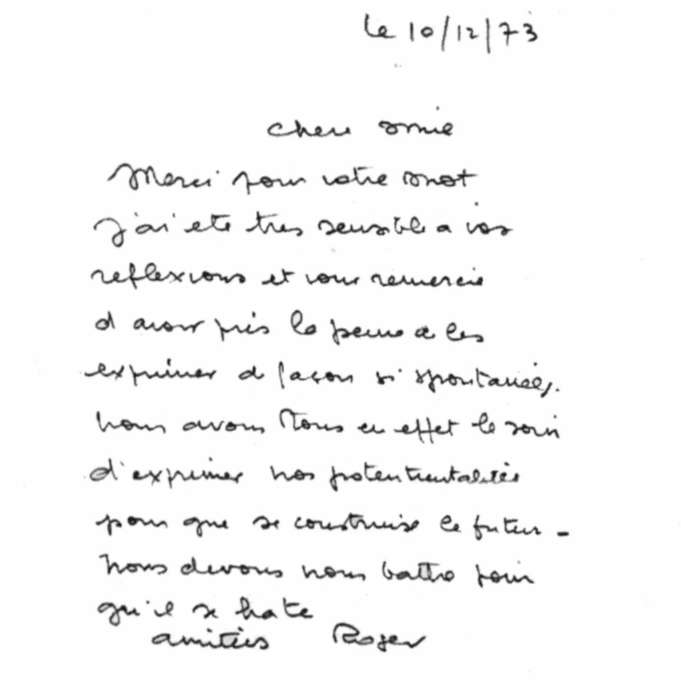 le 10/12/73
chere amie
Merci pour votre mot
j'ai ete tres sensible a vos
reflexions et vous remercie
d avoir pris la peine de les
exprimer de facon si spontanées.
Nous avons tous en effet le soin
d'exprimer nos potentientalités
pour que se construise le futur -
Nous devons nous battre pour
qu'il se hate
amitiés Roger